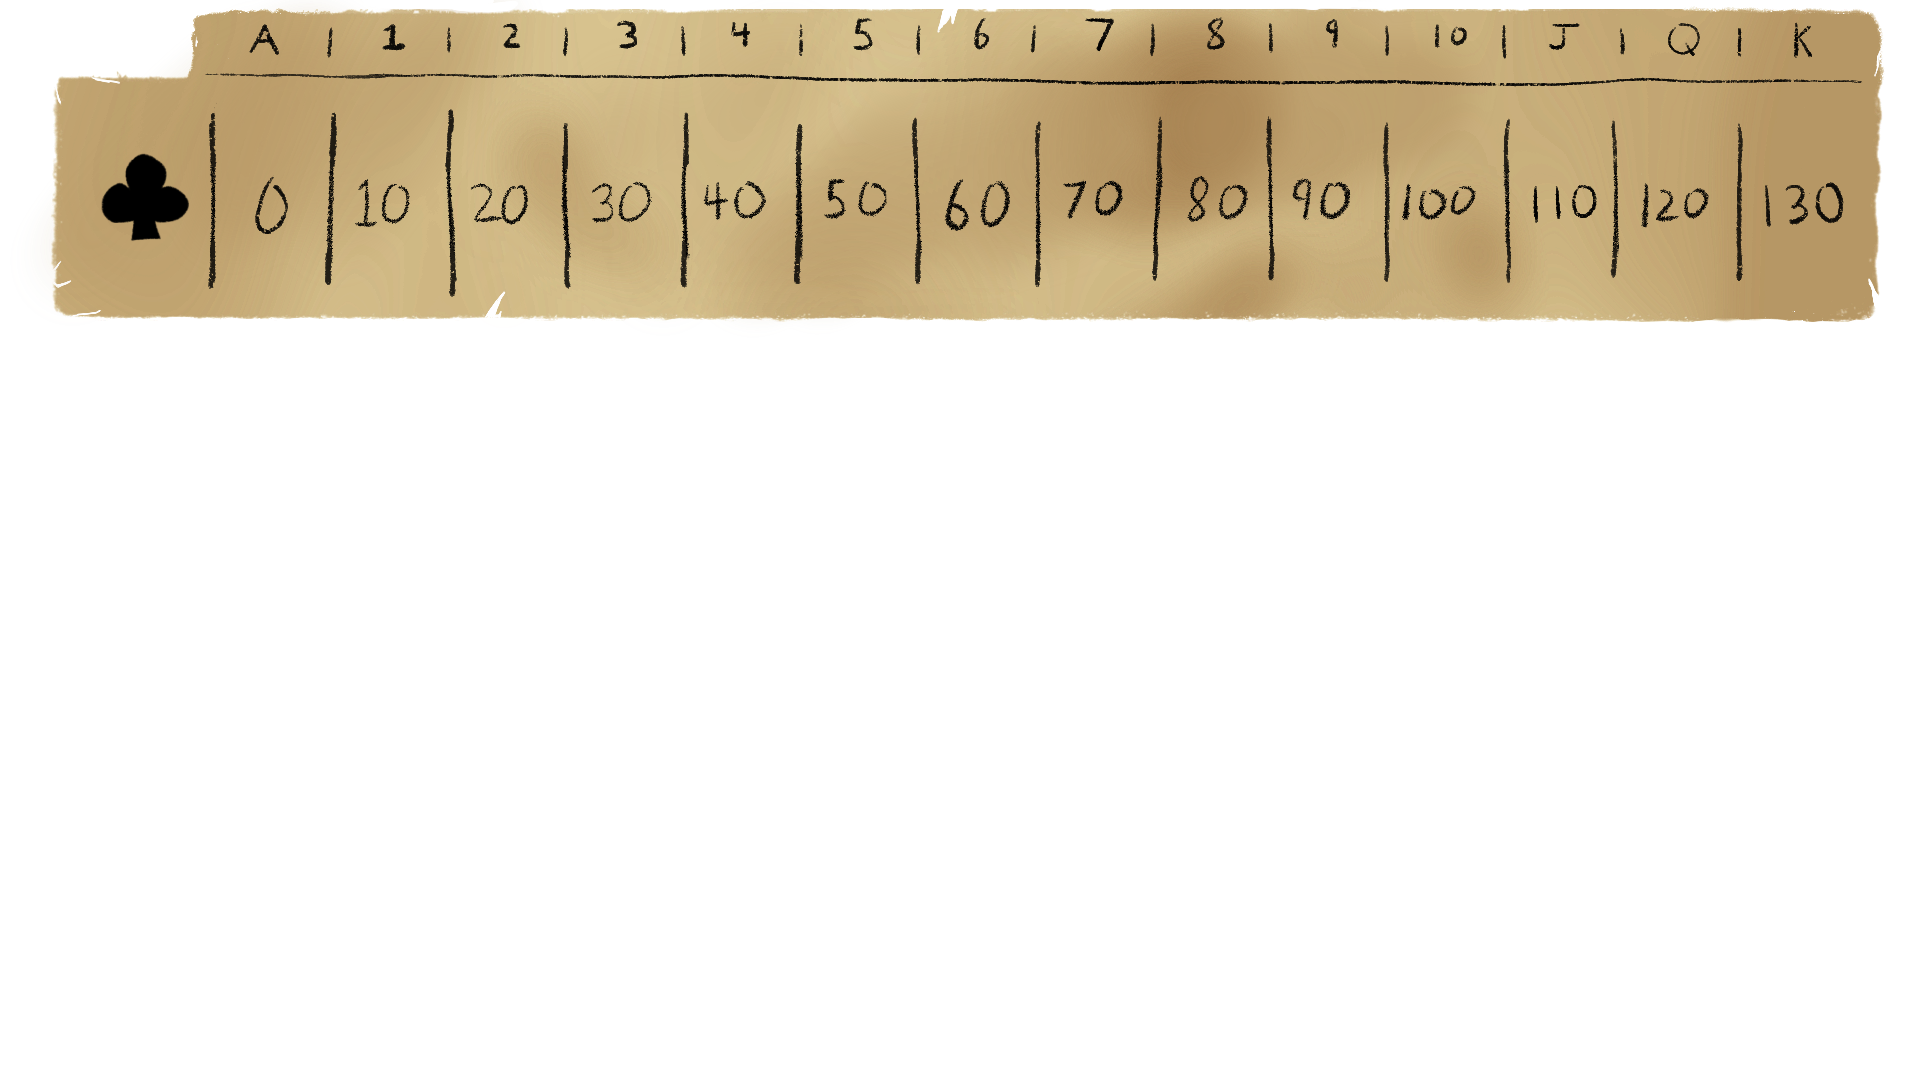 A | 1 | 2 | 3 | 4 | 5 | 6 | 7 | 8 | 9 | 10 | J | Q | K
♣ | 0 | 10 | 20 | 30 | 40 | 50 | 60 | 70 | 80 | 90 | 100 | 110 | 120 | 130